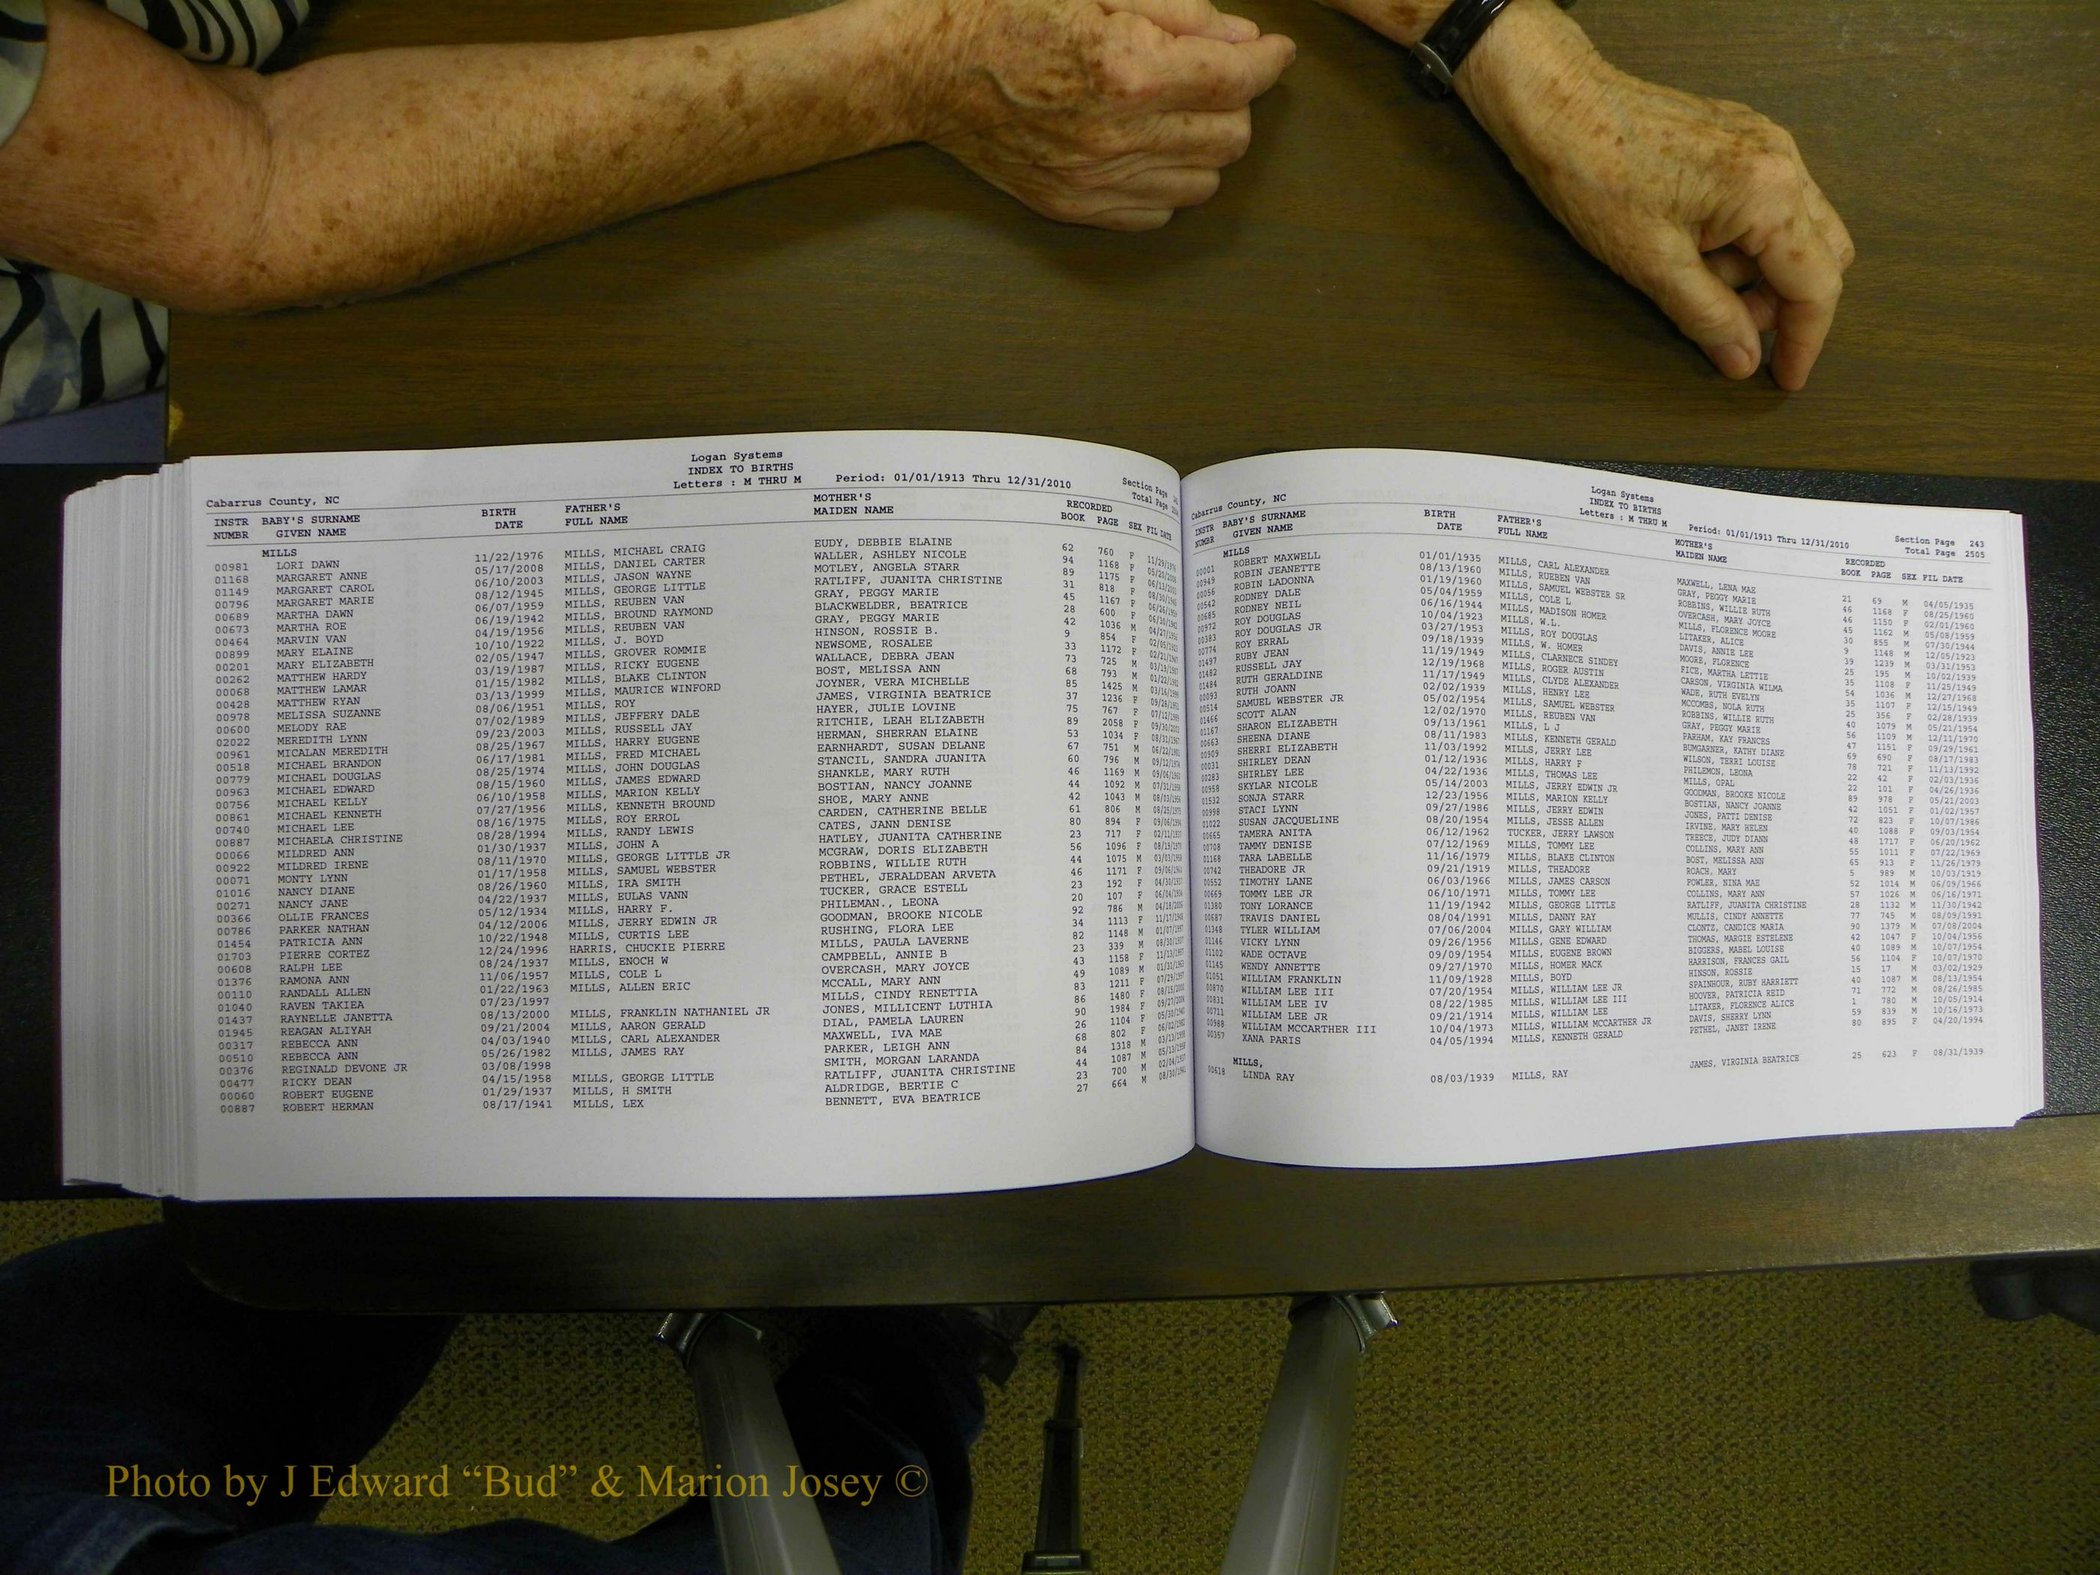 Logan Systems
INDEX TO BIRTHS
Letters : M THRU M Period: 01/01/1913 Thru 12/31/2010
Cabarrus County, NC Section Page
Total Page
INSTR BABY'S SURNAME BIRTH FATHER'S MOTHER'S RECORDED
NUMBR GIVEN NAME DATE FULL NAME MAIDEN NAME BOOK PAGE SEX FIL DATE
MILLS
00981 LORI DAWN 11/22/1976 MILLS, MICHAEL CRAIG EUDY, DEBBIE ELAINE 62 760 F 11/29/1976
01168 MARGARET ANNE 05/17/2008 MILLS, DANIEL CARTER WALLER, ASHLEY NICOLE 94 1168 F
01149 MARGARET CAROL 06/10/2003 MILLS, JASON WAYNE MOTLEY, ANGELA STARR 89 1175 F
00796 MARGARET MARIE 08/12/1945 MILLS, GEORGE LITTLE RATLIFF, JUANITA CHRISTINE 31 818 F
00689 MARTHA DAWN 06/07/1959 MILLS, REUBEN VAN GRAY, PEGGY MARIE 45 1167 F
00673 MARTHA ROE 06/19/1942 MILLS, BROUND RAYMOND BLACKWELDER, BEATRICE 28 600 F
00464 MARVIN VAN 04/19/1956 MILLS, REUBEN VAN GRAY, PEGGY MARIE 42 1036 M
00899 MARY ELAINE 10/10/1922 MILLS, J. BOYD HINSON, ROSSIE B. 9 854 F
00201 MARY ELIZABETH 02/05/1947 MILLS, GROVER ROMMIE NEWSOME, ROSALEE 33 1172 F
00262 MATTHEW HARDY 03/19/1987 MILLS, RICKY EUGENE WALLACE, DEBRA JEAN 73 725 M
00068 MATTHEW LAMAR 01/15/1982 MILLS, BLAKE CLINTON BOST, MELISSA ANN 68 793 M
00428 MATTHEW RYAN 03/13/1999 MILLS, MAURICE WINFORD JOYNER, VERA MICHELLE 85 1425 M
00978 MELISSA SUZANNE 08/06/1951 MILLS, ROY JAMES, VIRGINIA BEATRICE 37 1236 F
00600 MELODY RAE 07/02/1989 MILLS, JEFFERY DALE HAYER, JULIE LOVINE 75 767 F
02022 MEREDITH LYNN 09/23/2003 MILLS, RUSSELL JAY RITCHIE, LEAH ELIZABETH 89 2058 F
00961 MICALAN MEREDITH 08/25/1967 MILLS, HARRY EUGENE HERMAN, SHERRAN ELAINE 53 1034 F
00518 MICHAEL BRANDON 06/17/1981 MILLS, FRED MICHAEL EARNHARDT, SUSAN DELANE 67 751 M
00779 MICHAEL DOUGLAS 08/25/1974 MILLS, JOHN DOUGLAS STANCIL, SANDRA JUANITA 60 796 M
00963 MICHAEL EDWARD 08/15/1960 MILLS, JAMES EDWARD SHANKLE, MARY RUTH 46 1169 M
00756 MICHAEL KELLY 06/10/1958 MILLS, MARION KELLY BOSTIAN, NANCY JOANNE 44 1092 M
00861 MICHAEL KENNETH 07/27/1956 MILLS, KENNETH BROUND SHOE, MARY ANNE 42 1043 M
00740 MICHAEL LEE 08/16/1975 MILLS, ROY ERROL CARDEN, CATHERINE BELLE 61 806 M
00887 MICHAELA CHRISTINE 08/28/1994 MILLS, RANDY LEWIS CATES, JANN DENISE 80 894 F
00066 MILDRED ANN 01/30/1937 MILLS, JOHN A HATLEY, JUANITA CATHERINE 23 717 F
00922 MILDRED IRENE 08/11/1970 MILLS, GEORGE LITTLE JR MCGRAW, DORIS ELIZABETH 56 1096 F
00071 MONTY LYNN 01/17/1958 MILLS, SAMUEL WEBSTER ROBBINS, WILLIE RUTH 44 1075 M
01016 NANCY DIANE 08/26/1960 MILLS, IRA SMITH PETHEL, JERALDEAN ARVETA 46 1171 F
00271 NANCY JANE 04/22/1937 MILLS, EULAS VANN TUCKER, GRACE ESTELL 23 192 F
00366 OLLIE FRANCES 05/12/1934 MILLS, HARRY F. PHILEMAN., LEONA 20 107 F
00786 PARKER NATHAN 04/12/2006 MILLS, JERRY EDWIN JR GOODMAN, BROOKE NICOLE 92 786 M
01454 PATRICIA ANN 10/22/1948 MILLS, CURTIS LEE RUSHING, FLORA LEE 34 1113 F
01703 PIERRE CORTEZ 12/24/1996 HARRIS, CHUCKIE PIERRE MILLS, PAULA LAVERNE 82 1148 M
00608 RALPH LEE 08/24/1937 MILLS, ENOCH W CAMPBELL, ANNIE B 23 339 M
01376 RAMONA ANN 11/06/1957 MILLS, COLE L OVERCASH, MARY JOYCE 43 1158 F
00110 RANDALL ALLEN 01/22/1963 MILLS, ALLEN ERIC MCCALL, MARY ANN 49 1089 M
01040 RAVEN TAKIEA 07/23/1997 MILLS, CINDY RENETTIA 83 1211 F
01437 RAYNELLE JANETTA 08/13/2000 MILLS, FRANKLIN NATHANIEL JR JONES, MILLICENT LUTHIA 86 1480 F
01945 REAGAN ALIYAH 09/21/2004 MILLS, AARON GERALD DIAL, PAMELA LAUREN 90 1984 F
00317 REBECCA ANN 04/03/1940 MILLS, CARL ALEXANDER MAXWELL, IVA MAE 26 1104 F
00510 REBECCA ANN 05/26/1982 MILLS, JAMES RAY PARKER, LEIGH ANN 68 802 F
00376 REGINALD DEVONE JR 03/08/1998 SMITH, MORGAN LARANDA 84 1318 M
00477 RICKY DEAN 04/15/1958 MILLS, GEORGE LITTLE RATLIFF, JUANITA CHRISTINE 44 1087 M
00060 ROBERT EUGENE 01/29/1937 MILLS, H SMITH ALDRIDGE, BERTIE C 23 700 M
00887 ROBERT HERMAN 08/17/1941 MILLS, LEX BENNETT, EVA BEATRICE 27 664 M
Logan Systems
INDEX TO BIRTHS
Letters : M THRU M Period: 01/01/1913 Thru 12/31/2010
Cabarrus County, NC Section Page 243
Total Page 2505
INSTR BABY'S SURNAME BIRTH FATHER'S MOTHER'S RECORDED
NUMBR GIVEN NAME DATE FULL NAME MAIDEN NAME BOOK PAGE SEX FIL DATE
MILLS
00001 ROBERT MAXWELL 01/01/1935 MILLS, CARL ALEXANDER MAXWELL, LENA MAE 21 69 M 04/05/1935
00949 ROBIN JEANETTE 08/13/1960 MILLS, RUEBEN VAN GRAY, PEGGY MARIE 46 1168 F 08/25/1960
00056 ROBIN LADONNA 01/19/1960 MILLS, SAMUEL WEBSTER SR ROBBINS, WILLIE RUTH 46 1150 F 02/01/1960
00542 RODNEY DALE 05/04/1959 MILLS, COLE L OVERCASH, MARY JOYCE 45 1162 M 05/08/1959
00685 RODNEY NEIL 06/16/1944 MILLS, MADISON HOMER MILLS, FLORENCE MOORE 30 855 M 07/30/1944
00972 ROY DOUGLAS 10/04/1923 MILLS, W.L. LITAKER, ALICE 9 1148 M 12/05/1923
00383 ROY DOUGLAS JR 03/27/1953 MILLS, ROY DOUGLAS DAVIS, ANNIE LEE 39 1239 M 03/31/1953
00774 ROY ERRAL 09/18/1939 MILLS, W. HOMER MOORE, FLORENCE 25 195 M 10/02/1939
01497 RUBY JEAN 11/19/1949 MILLS, CLARNECE SINDEY FICE, MARTHA LETTIE 35 1108 F 11/25/1949
01482 RUSSELL JAY 12/19/1968 MILLS, ROGER AUSTIN CARSON, VIRGINIA WILMA 54 1036 M 12/27/1968
01484 RUTH GERALDINE 11/17/1949 MILLS, CLYDE ALEXANDER WADE, RUTH EVELYN 35 1107 F 12/15/1949
00093 RUTH JOANN 02/02/1939 MILLS, HENRY LEE MCCOMBS, NOLA RUTH 25 356 F 02/28/1939
00514 SAMUEL WEBSTER JR 05/02/1954 MILLS, SAMUEL WEBSTER ROBBINS, WILLIE RUTH 40 1079 M 05/21/1954
01466 SCOTT ALAN 12/02/1970 MILLS, REUBEN VAN GRAY, PEGGY MARIE 56 1109 M 12/11/1970
01167 SHARON ELIZABETH 09/13/1961 MILLS, L J PARHAM, KAY FRANCES 47 1151 F 09/29/1961
00663 SHEENA DIANE 08/11/1983 MILLS, KENNETH GERALD BUMGARNER, KATHY DIANE 69 690 F 08/17/1983
00909 SHERRI ELIZABETH 11/03/1992 MILLS, JERRY LEE WILSON, TERRI LOUISE 78 721 F 11/13/1992
00031 SHIRLEY DEAN 01/12/1936 MILLS, HARRY F PHILEMON, LEONA 22 42 F 02/03/1936
00283 SHIRLEY LEE 04/22/1936 MILLS, THOMAS LEE MILLS, OPAL 22 101 F 04/26/1936
00958 SKYLAR NICOLE 05/14/2003 MILLS, JERRY EDWIN JR GOODMAN, BROOKE NICOLE 89 978 F 05/21/2003
01532 SONJA STARR 12/23/1956 MILLS, MARION KELLY BOSTIAN, NANCY JOANNE 42 1051 F 01/02/1957
00998 STACI LYNN 09/27/1986 MILLS, JERRY EDWIN JONES, PATTI DENISE 72 823 F 10/07/1986
01022 SUSAN JACQUELINE 08/20/1954 MILLS, JESSE ALLEN IRVINE, MARY HELEN 40 1088 F 09/03/1954
00665 TAMERA ANITA 06/12/1962 TUCKER, JERRY LAWSON TREECE, JUDY DIANN 48 1717 F 06/20/1962
00708 TAMMY DENISE 07/12/1969 MILLS, TOMMY LEE COLLINS, MARY ANN 55 1011 F 07/22/1969
01168 TARA LABELLE 11/16/1979 MILLS, BLAKE CLINTON BOST, MELISSA ANN 65 913 F 11/26/1979
00742 THEADORE JR 09/21/1919 MILLS, THEADORE ROACH, MARY 5 989 M 10/03/1919
00552 TIMOTHY LANE 06/03/1966 MILLS, JAMES CARSON FOWLER, NINA MAE 52 1014 M 06/09/1966
00669 TOMMY LEE JR 06/10/1971 MILLS, TOMMY LEE COLLINS, MARY ANN 57 1026 M 06/16/1971
01380 TONY LORANCE 11/19/1942 MILLS, GEORGE LITTLE RATLIFF, JUANITA CHRISTINE 28 1132 M 11/30/1942
00687 TRAVIS DANIEL 08/04/1991 MILLS, DANNY RAY MULLIS, CINDY ANNETTE 77 745 M 08/09/1991
01348 TYLER WILLIAM 07/06/2004 MILLS, GARY WILLIAM CLONTZ, CANDICE MARIA 90 1379 M 07/08/2004
01146 VICKY LYNN 09/26/1956 MILLS, GENE EDWARD THOMAS, MARGIE ESTELENE 42 1047 F 10/04/1956
01102 WADE OCTAVE 09/09/1954 MILLS, EUGENE BROWN BIGGERS, MABEL LOUISE 40 1089 M 10/07/1954
01145 WENDY ANNETTE 09/27/1970 MILLS, HOMER MACK HARRISON, FRANCES GAIL 56 1104 F 10/07/1970
01051 WILLIAM FRANKLIN 11/09/1928 MILLS, BOYD HINSON, ROSSIE 15 17 M 03/02/1929
00870 WILLIAM LEE III 07/20/1954 MILLS, WILLIAM LEE JR SPAINHOUR, RUBY HARRIETT 40 1087 M 08/13/1954
00831 WILLIAM LEE IV 08/22/1985 MILLS, WILLIAM LEE III HOOVER, PATRICIA REID 71 772 M 08/26/1985
00711 WILLIAM LEE JR 09/21/1914 MILLS, WILLIAM LEE LITAKER, FLORENCE ALICE 1 780 M 10/05/1914
00988 WILLIAM MCCARTHER III 10/04/1973 MILLS, WILLIAM MCCARTHER JR DAVIS, SHERRY LYNN 59 839 M 10/16/1973
00357 XANA PARIS 04/05/1994 MILLS, KENNETH GERALD PETHEL, JANET IRENE 80 895 F 04/20/1994
MILLS,
00618 LINDA RAY 08/03/1939 MILLS, RAY JAMES, VIRGINIA BEATRICE 25 623 F 08/31/1939
Photo by J Edward “Bud” & Marion Josey ©